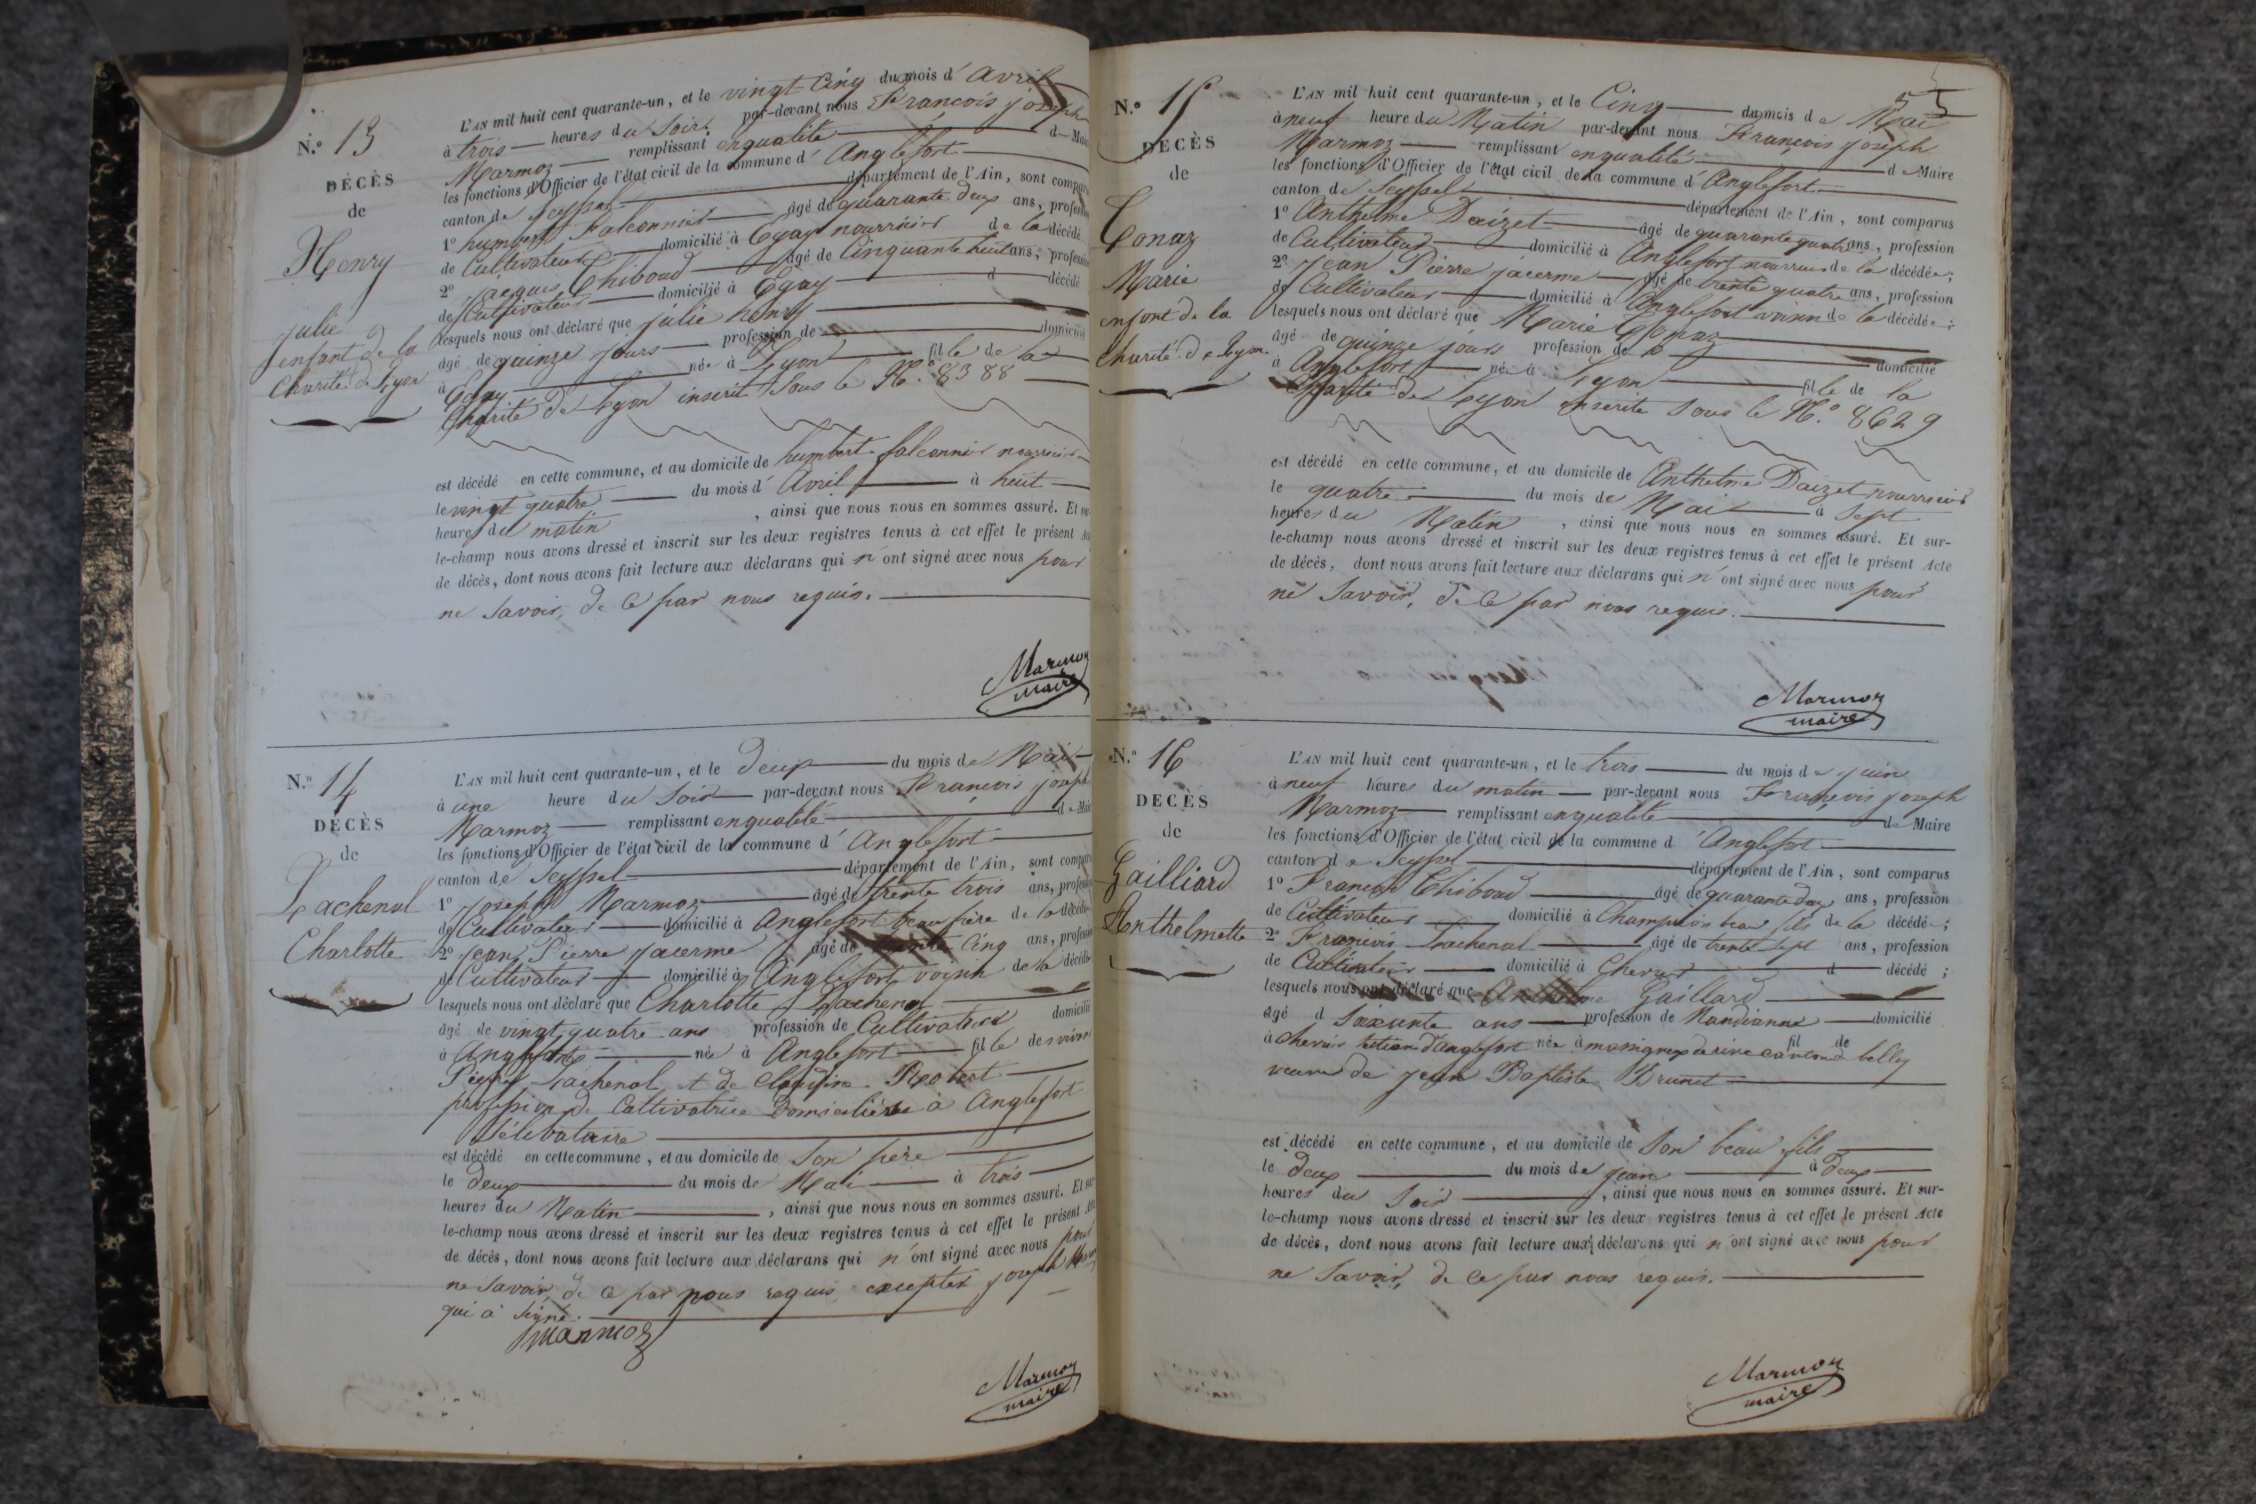 N.º 13
DÉCÈS
de
Henry
julie
enfant de la
Charité de Lyon
L'AN mil huit cent quarante-un, et le vingt Cinq du mois d'avril
à trois heures du Soir par-devant nous François joseph
Marmoz remplissant en qualité de Maire
les fonctions d'Officier de l'état civil de la commune d'Anglefort
canton de Seyssel département de l'Ain, sont comparus
1º humbert falconnier âgé de quarante deux ans, profession
de Cultivateur domicilié à Egay nourricier de la décédé
2º jacques Thiboud âgé de Cinquante huit ans, profession
de Cultivateur domicilié à Egay d décédé
lesquels nous ont déclaré que julie henry
âgé de quinze jours profession de domicilié
à Egay née à Lyon fille de la
Charité de Lyon inscrit sous le Nº 8388
est décédé en cette commune, et au domicile de humbert falconnier nourricier
le vingt quatre du mois d'Avril à huit
heures du matin, ainsi que nous nous en sommes assuré. Et sur-
le-champ nous avons dressé et inscrit sur les deux registres tenus à cet effet le présent Acte
de décès, dont nous avons fait lecture aux déclarans qui n'ont signé avec nous pour
ne Savoir, de Ce par nous requis.
Marmoz
maire
N.º 14
DÉCÈS
de
Lachenal
Charlotte
L'AN mil huit cent quarante-un, et le deux du mois de Mai
à une heure du Soir par-devant nous François joseph
Marmoz remplissant en qualité de Maire
les fonctions d'Officier de l'état civil de la commune d'Anglefort
canton de Seyssel département de l'Ain, sont comparus
1º joseph Marmoz âgé de trente trois ans, profession
de Cultivateur domicilié à Anglefort beau frère de la décédée
2º jean Pierre jacerme âgé de Cinq ans, profession
de Cultivateur domicilié à Anglefort voisin de la décédée
lesquels nous ont déclaré que Charlotte Lachenal
âgé de vingt quatre ans profession de Cultivatrice domicilié
à Anglefort née à Anglefort fille des
Pierre Lachenal et de Claudine Robert
profession de Cultivatrice Domiciliée à Anglefort
Célibataire
est décédé en cette commune, et au domicile de Son père
le deux du mois de Mai à trois
heures du Matin, ainsi que nous nous en sommes assuré. Et sur-
le-champ nous avons dressé et inscrit sur les deux registres tenus à cet effet le présent Acte
de décès, dont nous avons fait lecture aux déclarans qui n'ont signé avec nous pour
ne Savoir, de Ce par nous requis excepter joseph Marmoz
qui à signé.
marmoz
Marmoz
maire
55
N.º 15
DÉCÈS
de
Gonaz
Marie
enfant de la
Charité de Lyon
L'AN mil huit cent quarante-un, et le Cinq du mois de Mai
à neuf heure du Matin par-devant nous François joseph
Marmoz remplissant en qualité de Maire
les fonctions d'Officier de l'état civil de la commune d'Anglefort
canton de Seyssel département de l'Ain, sont comparus
1º Anthelme Daizet âgé de quarante quatre ans, profession
de Cultivateur domicilié à Anglefort nourricier de la décédée;
2º jean Pierre jacerme âgé de trente quatre ans, profession
de Cultivateur domicilié à Anglefort voisin de la décédée;
lesquels nous ont déclaré que Marie Gonaz
âgé de quinze jours profession de domicilié
à Anglefort née à Lyon fille de la
Charité de Lyon inscrite sous le Nº 8629
est décédé en cette commune, et au domicile de Anthelme Daizet nourricier
le quatre du mois de Mai à sept
heures du Matin, ainsi que nous nous en sommes assuré. Et sur-
le-champ nous avons dressé et inscrit sur les deux registres tenus à cet effet le présent Acte
de décès, dont nous avons fait lecture aux déclarans qui n'ont signé avec nous pour
ne Savoir, de Ce par nous requis.
Marmoz
maire
N.º 16
DÉCÈS
de
Gailliard
Anthelmette
L'AN mil huit cent quarante-un, et le trois du mois de juin
à neuf heures du matin par-devant nous François joseph
Marmoz remplissant en qualité de Maire
les fonctions d'Officier de l'état civil de la commune d'Anglefort
canton de Seyssel département de l'Ain, sont comparus
1º François Thiboud âgé de quarante deux ans, profession
de Cultivateur domicilié à beau fils de la décédée;
2º François Lachenal âgé de trente sept ans, profession
de Cultivateur domicilié à d décédé;
lesquels nous ont déclaré que Gaillard
âgé d Soixante ans profession de Mandianne domicilié
à d'anglefort née à fil de belley
veuve de jean Baptiste Brunet
est décédé en cette commune, et au domicile de Son beau fils
le deux du mois de juin à deux
heures du Soir, ainsi que nous nous en sommes assuré. Et sur-
le-champ nous avons dressé et inscrit sur les deux registres tenus à cet effet le présent Acte
de décès, dont nous avons fait lecture aux déclarans qui n'ont signé avec nous pour
ne Savoir, de Ce par nous requis.
Marmoz
maire